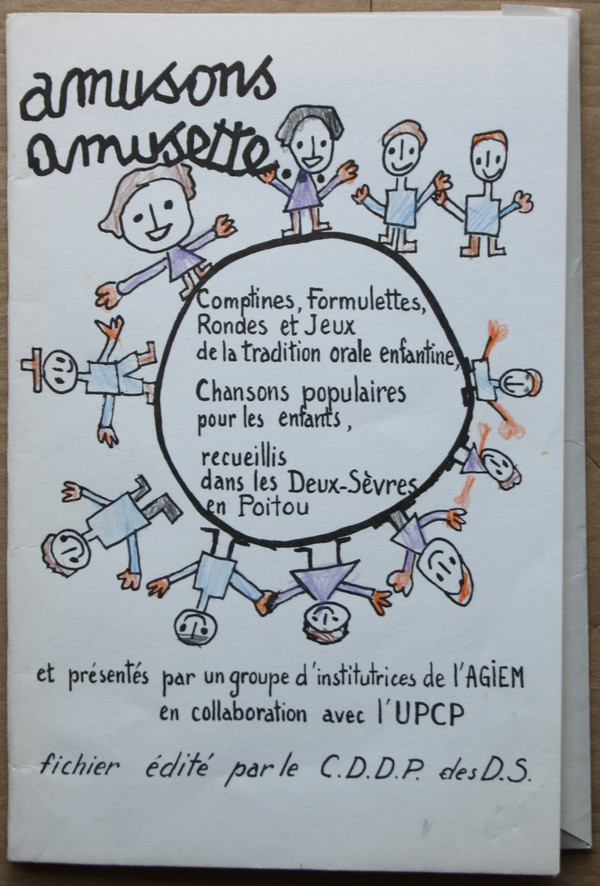 amusons
amusette
Comptines, Formulettes,
Rondes et Jeux
de la tradition orale enfantine,
Chansons populaires
pour les enfants,
recueillis
dans les Deux-Sèvres
en Poitou
et présentés par un groupe d'institutrices de l'AGiEM
en collaboration avec l'UPCP
fichier édité par le C.D.D.P. des D.S.